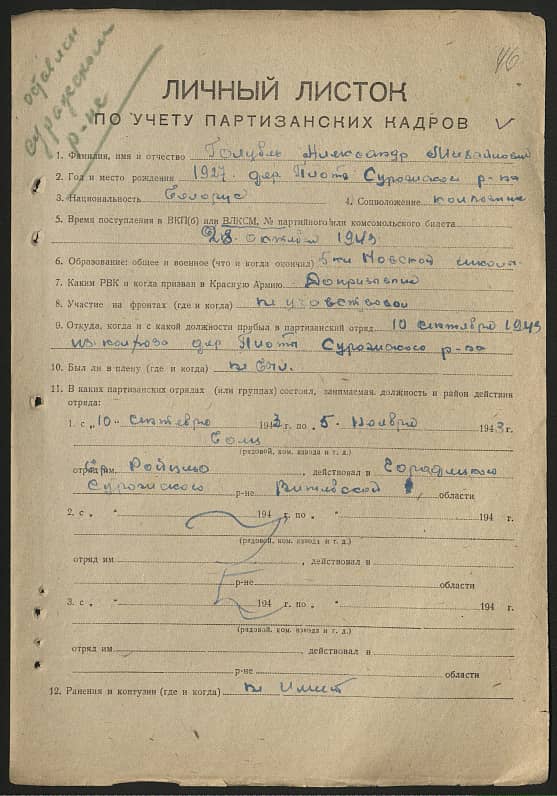 оставлен
суражском
р-не
46
ЛИЧНЫЙ ЛИСТОК
ПО УЧЕТУ ПАРТИЗАНСКИХ КАДРОВ
1. Фамилия, имя и отчество Голубь Александр Михайлович
2. Год и место рождения 1927. дер Плоты Суражского р-на
3. Национальность Белорус 4. Соцположение колхозник
5. Время поступления в ВКП(б) или ВЛКСМ, № партийного или комсомольского билета
28 октября 1943
6. Образование: общее и военное (что и когда окончил) школа
7. Каким РВК и когда призван в Красную Армию Допризывник
8. Участие на фронтах (где и когда) не участвовал
9. Откуда, когда и с какой должности прибыл в партизанский отряд 10 сентября 1943
из колхоза дер Плоты Суражского р-на
10. Был ли в плену (где и когда) не был.
11. В каких партизанских отрядах (или группах) состоял, занимаемая должность и район действия
отряда:
1. с „10" сентября 1943 г. по „5" Ноября 1943 г.
(рядовой, ком. взвода и т. д.)
отряд им. Райцева, действовал в
Суражского р-не Витебской области
2. с „ " 194 г. по „ " 194 г.
(рядовой, ком. взвода и т. д.)
отряд им , действовал в
р-не области
3. с „ " 194 г. по „ " 194 г.
(рядовой, ком. взвода и т. д.)
отряд им. , действовал в
р-не области
12. Ранения и контузии (где и когда) не имеет